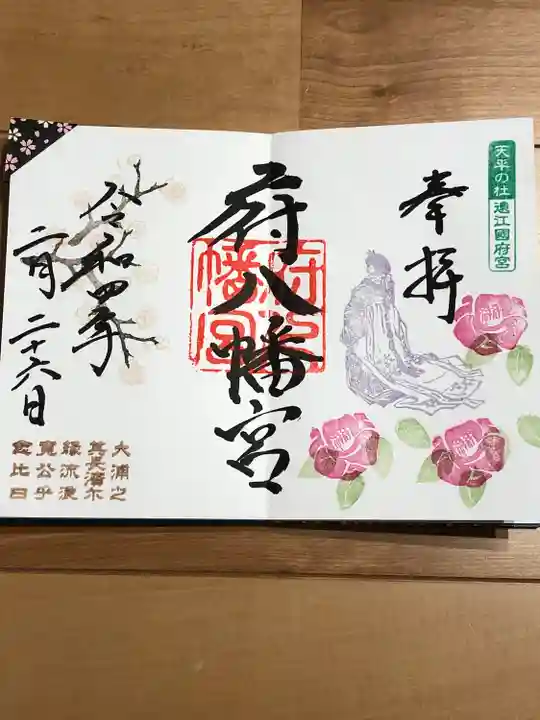 天平の杜 遠江國府宮
奉拝
府八幡宮
府八
幡宮
令和四年
二月二十六日
大浦之
其長濱尓
縁流浪
寛公乎
念比日